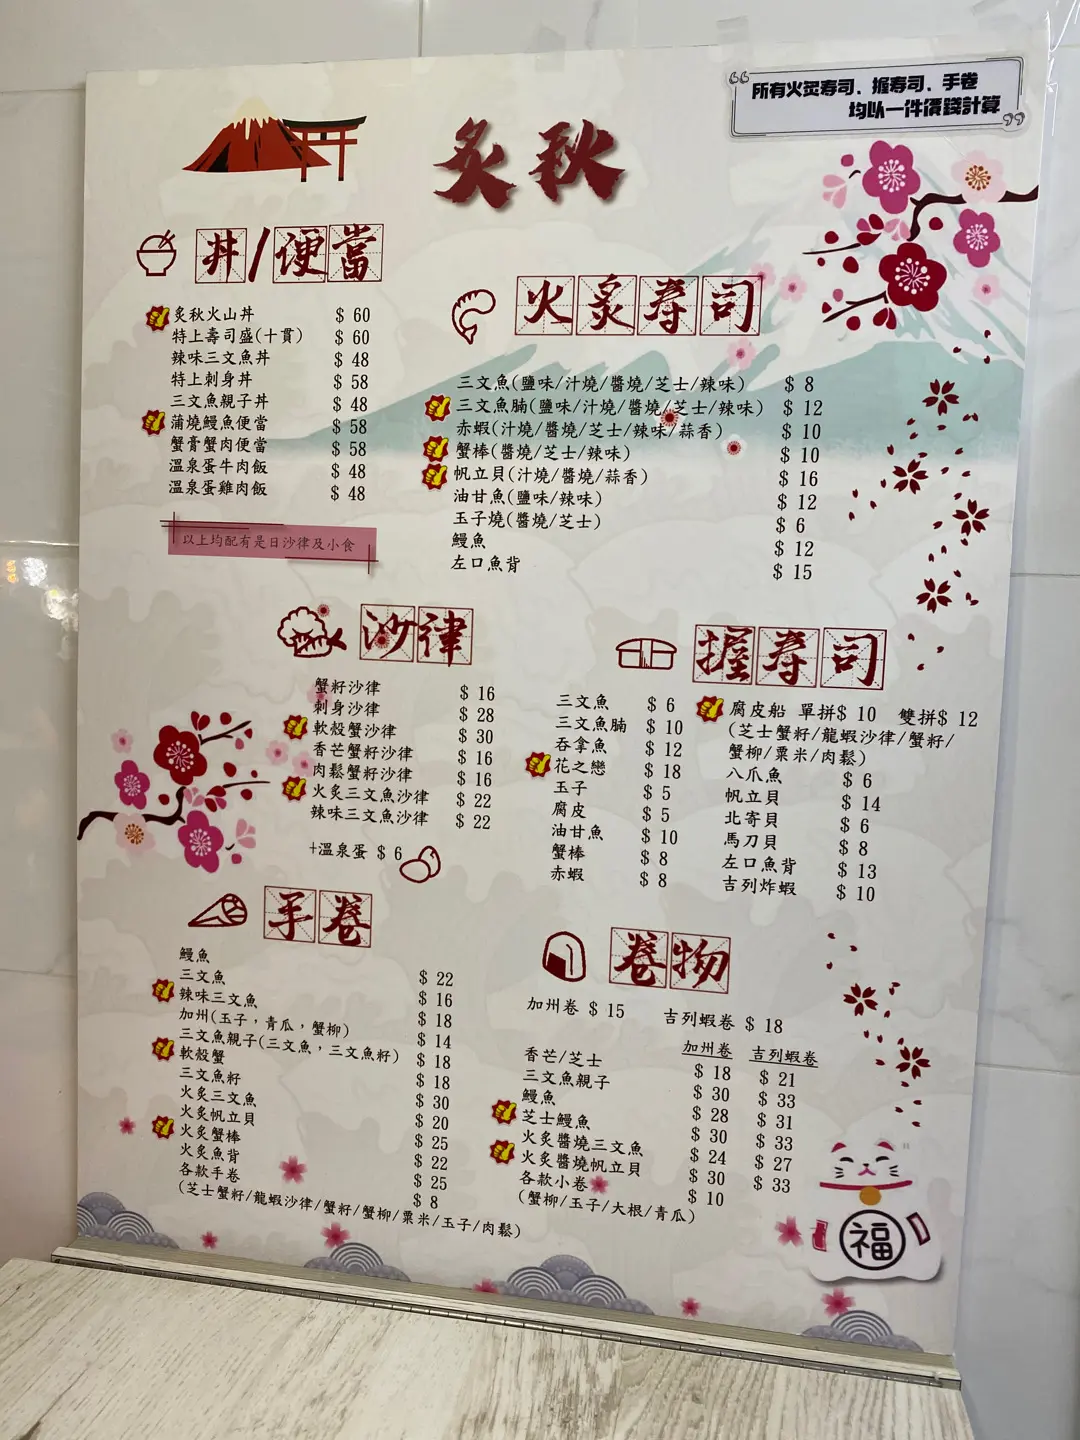 所有火炙寿司、握寿司、手卷
均以一件價錢計算
炙秋
丼/便當
炙秋火山丼 $ 60
特上壽司盛(十貫) $ 60
辣味三文魚丼 $ 48
特上刺身丼 $ 58
三文魚親子丼 $ 48
蒲燒鰻魚便當 $ 58
蟹膏蟹肉便當 $ 58
溫泉蛋牛肉飯 $ 48
溫泉蛋雞肉飯 $ 48
以上均配有是日沙律及小食
火炙寿司
三文魚(鹽味/汁燒/醬燒/芝士/辣味) $ 8
三文魚腩(鹽味/汁燒/醬燒/芝士/辣味) $ 12
赤蝦(汁燒/醬燒/芝士/辣味/蒜香) $ 10
蟹棒(醬燒/芝士/辣味) $ 10
帆立貝(汁燒/醬燒/蒜香) $ 16
油甘魚(鹽味/辣味) $ 12
玉子燒(醬燒/芝士) $ 6
鰻魚 $ 12
左口魚背 $ 15
沙律
蟹籽沙律 $ 16
刺身沙律 $ 28
軟殼蟹沙律 $ 30
香芒蟹籽沙律 $ 16
肉鬆蟹籽沙律 $ 16
火炙三文魚沙律 $ 22
辣味三文魚沙律 $ 22
+溫泉蛋 $ 6
握寿司
三文魚 $ 6
三文魚腩 $ 10
吞拿魚 $ 12
花之戀 $ 18
玉子 $ 5
腐皮 $ 5
油甘魚 $ 10
蟹棒 $ 8
赤蝦 $ 8
腐皮船 單拼$ 10 雙拼$ 12
(芝士蟹籽/龍蝦沙律/蟹籽/
蟹柳/粟米/肉鬆)
八爪魚 $ 6
帆立貝 $ 14
北寄貝 $ 6
馬刀貝 $ 8
左口魚背 $ 13
吉列炸蝦 $ 10
手卷
鰻魚 $ 22
三文魚 $ 16
辣味三文魚 $ 18
加州(玉子，青瓜，蟹柳) $ 14
三文魚親子(三文魚，三文魚籽) $ 18
軟殼蟹 $ 18
三文魚籽 $ 30
火炙三文魚 $ 20
火炙帆立貝 $ 25
火炙蟹棒 $ 22
火炙魚背 $ 25
各款手卷 $ 8
(芝士蟹籽/龍蝦沙律/蟹籽/蟹柳/粟米/玉子/肉鬆)
卷物
加州卷 $ 15 吉列蝦卷 $ 18
加州卷 吉列蝦卷
香芒/芝士 $ 18 $ 21
三文魚親子 $ 30 $ 33
鰻魚 $ 28 $ 31
芝士鰻魚 $ 30 $ 33
火炙醬燒三文魚 $ 24 $ 27
火炙醬燒帆立貝 $ 30 $ 33
各款小卷 $ 10
(蟹柳/玉子/大根/青瓜)
福